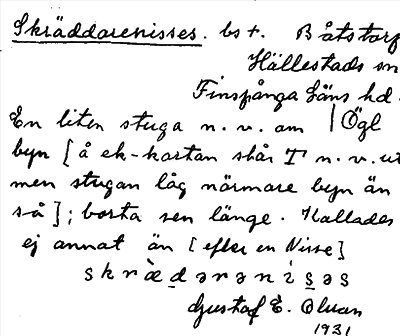 Skräddarenisses. bs t. Båtstorp
Hällestads sn
Finspånga läns hd.
En liten stuga n. v. om | Ögl
byn [å ek-kartan står T n. v. ut
men stugan låg närmare byn än
så]; borta sen länge. Kallades
ej annat än [efter en Nisse]
skræ̀dərəníṣəs
Gustaf E. Olsson
1931